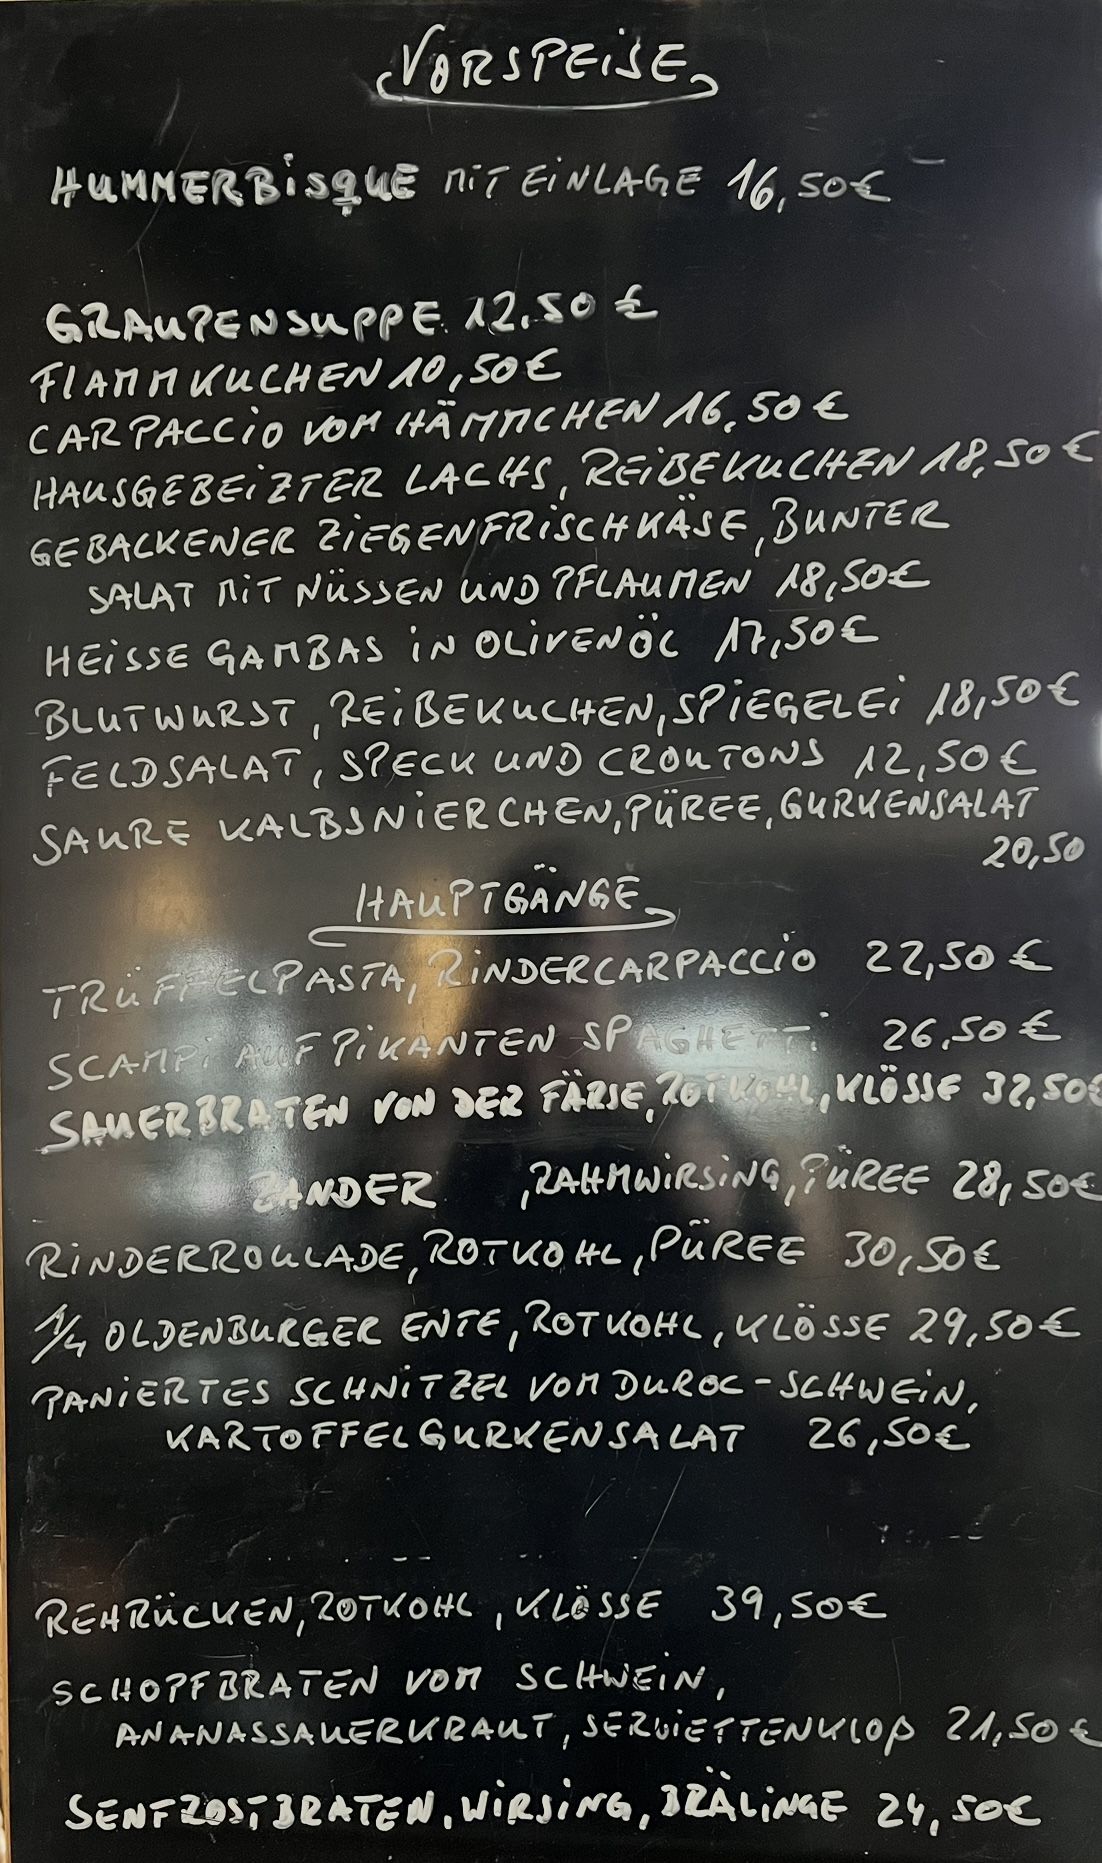 VORSPEISE
HUMMERBISQUE MIT EINLAGE 16,50€
GRAUPENSUPPE 12.50 €
FLAMMKUCHEN 10,50€
CARPACCIO VOM HÄMMCHEN 16,50€
HAUSGEBEIZTER LACHS, REIBEKUCHEN 18,50€
GEBACKENER ZIEGENFRISCHKÄSE, BUNTER
SALAT MIT NÜSSEN UND PFLAUMEN 18,50€
HEISSE GAMBAS IN OLIVENÖL 17,50€
BLUTWURST, REIBEKUCHEN, SPIEGELEI 18,50€
FELDSALAT, SPECK UND CROUTONS 12,50€
SAURE KALBSNIERCHEN, PÜREE, GURKENSALAT
20,50
HAUPTGÄNGE
TRÜFFELPASTA, RINDERCARPACCIO 22,50€
SCAMPI AUF PIKANTEN SPAGHETTI 26,50€
SAUERBRATEN VON DER FÄRSE, ROTKOHL, KLÖSSE 32,50€
ZANDER , RAHMWIRSING, PÜREE 28,50€
RINDERROULADE, ROTKOHL, PÜREE 30,50€
1/4 OLDENBURGER ENTE, ROTKOHL, KLÖSSE 29,50€
PANIERTES SCHNITZEL VOM DUROC-SCHWEIN,
KARTOFFELGURKENSALAT 26,50€
REHRÜCKEN, ROTKOHL, KLÖSSE 39,50€
SCHOPFBRATEN VOM SCHWEIN,
ANANASSAUERKRAUT, SERVIETTENKLOP 21,50€
SENFROSTBRATEN, WIRSING, DRÄLINGE 24,50€